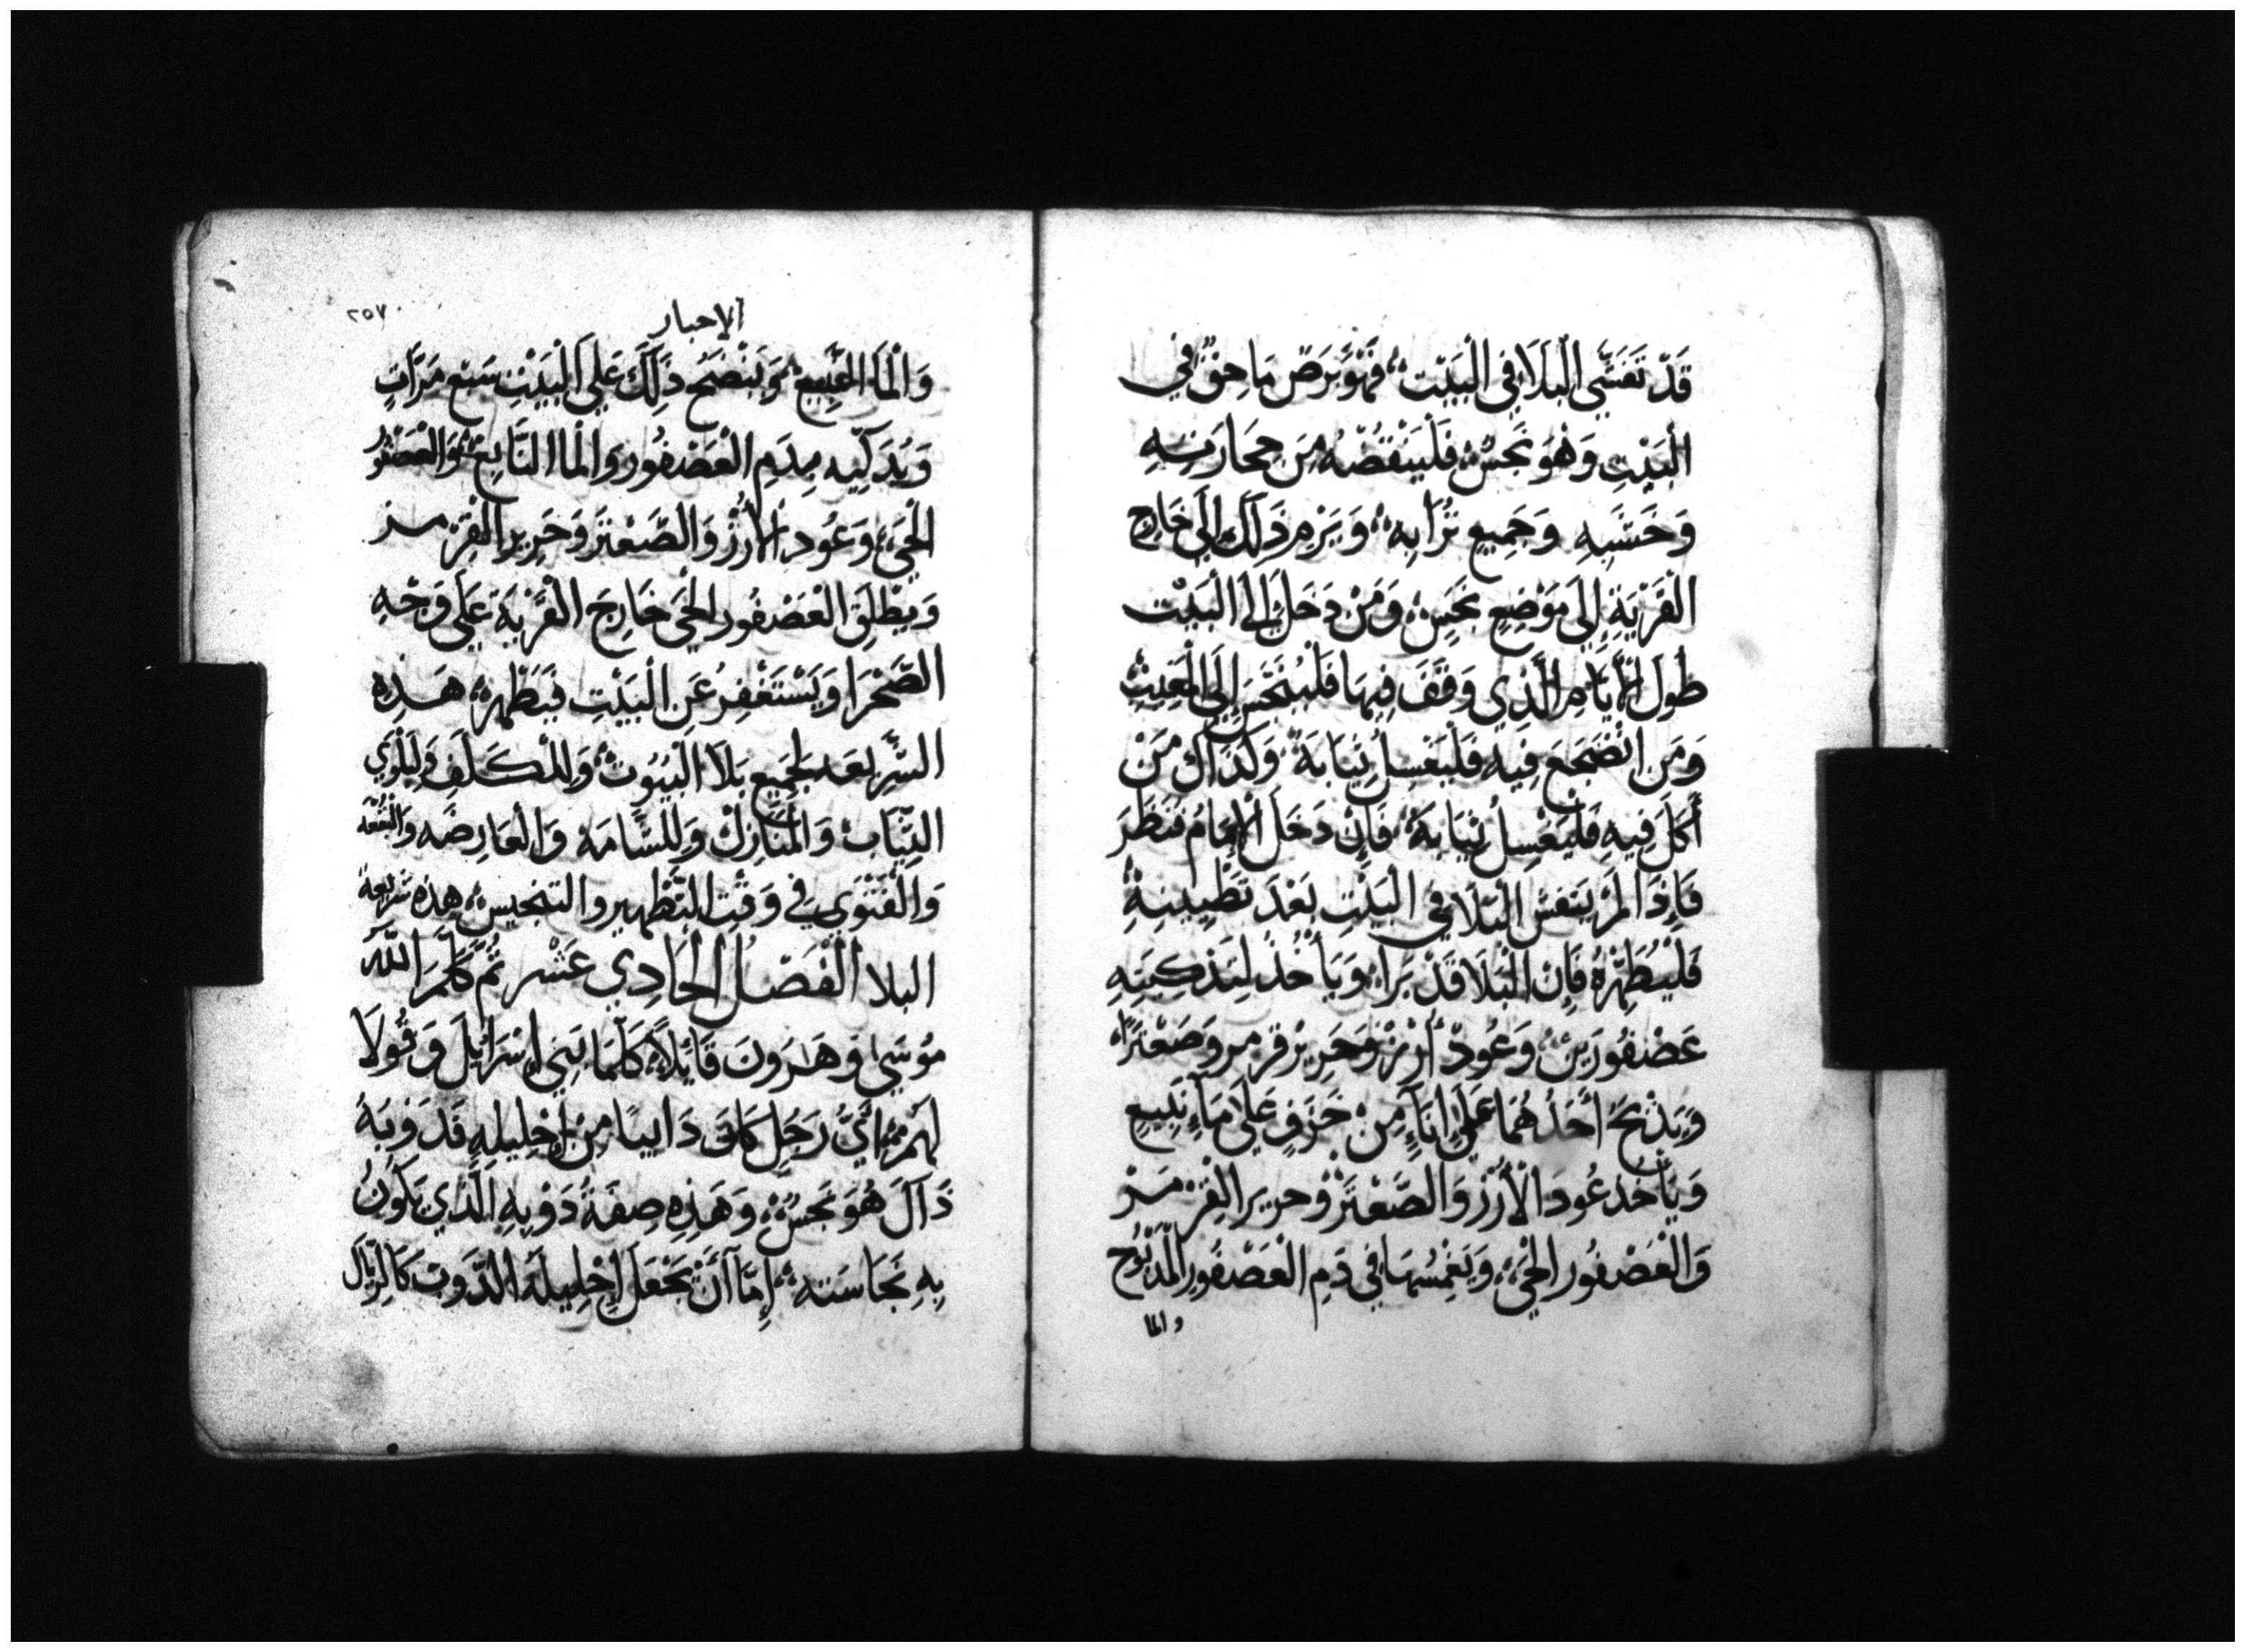 قَدْ تَفَشَّي الْبَلَا فِي الْبَيْت؛ فَهُوَ بَرَصٌ مَاحِقٌ فِي
الْبَيْتِ وَهُوَ نَجَسٌ؛ فَلْيَنْقُضْهُ مِنَ حِجَارَتِهِ
وَخَشَبِهِ وَجَمِيعِ تُرَابِهِ؛ وَيَرْمِ ذَلَكَ إِلَي خَارِجِ
الْقَرْيَةِ إِلَي مَوْضِعٍ نَجَسٍ؛ وَمَنْ دَخَلَ إِلَي الْبَيْت
طُولَ الْأَيَّامِ الَّذِي وَقَفَ فِيهَا فَلْيُنَجَّس إِلَي الْمَغِيبْ
وَمَنِ انْضَجَعَ فِيهِ فَلْيَغْسِلْ ثِيَابَهُ وَكَذَاكَ مَنْ
أَكَلَ فِيهِ فَلْيَغْسِلْ ثِيَابَهُ؛ فَإِنْ دَخَلَ الْإِمَامُ فَنَظَرَ
فَإِذَا لَمْ يَتَفَشَّ الْبَلَا فِي الْبَيْتِ بَعْدَ تَطْيِينِهِ
فَلْيُطَهِّرْهُ فَإِنَّ الْبَلَا قَدْ بَرَا؛ وَيَأْخُذْ لِتَذْكِيَتِهِ
عَصْفُورَيْنْ؛ وَعُودْ أَرْزْ وَحَرِيرْ قِرْمِز وَصَعْتَرًا؛
وَيَذْبَحُ أَحَدُهُمَا عَلَي إِنَآءٍ مِنْ خَزَفٍ عَلَي مَآءٍ نَبِيعٍ
وَيَأْخُذْ عُودَ الْأَرْزْ وَالصَّعْتَرْ وَحرير القِرْمِز
وَالْعَصْفُور الْحَيّ؛ وَيَغْمِسُهَا فِي دَمِ الْعَصْفُورِ الْمَذْبُوح
والما
الاحبار
٢٥٧
وَالْمَا النَّبِيع؛ وَيَنْضَحُ ذَلِكَ عَلَي الْبَيْتِ سَبْعَ مَرَّاتٍ
وَيُذَكِّيهِ بِدَمِ الْعَصْفُور وَالْمَا النَّابِع؛ وَالْعَصْفُور
الْحَيّ؛ وَعُودِ الْأَرْزْ وَالصَّعْتَر وَحَرِير القِرْمِز
وَيطْلِقِ الْعَصْفُور الْحَيّ خَارِجَ الْقَرْيَةِ عَلَي وَجْهِ
الصَّحْرَا وَيَسْتَغْفِرُ عَنِ الْبَيْتِ فَيَطْهِر؛ هَذِهِ
الشَّرِيعَه لِجَمِيعِ بَلَا الْبُيُوت؛ وَلِلْكَلَفِ وَلِبَلْوَي
الثِّيَاب وَالْمَنَازِلْ وَلِلشَّامَة وَالْعَارِضَه وَالْبُقْعَه
وَالْفَتْوَي فِي وَقْتِ التَّطْهِير والتنجيس؛ هَذِهِ شَرِيعَةُ
البلا الْفَصْلُ الْحَادِي عَشْر ثُمَّ كَلَّمَ اللَّه
مُوسَي وَهَرُونَ قَايْلًا؛ كَلِّمَا بَنِي إِسْرَائِلَ وَقُولَا
لَهُمْ؛ أَيُّ رَجُلٍ كَانَ دَايبًا مِنْ إِحْلِيلِهِ فَذَوْبَهُ
ذَآكَ هُوَ نَجَسٌ؛ وَهَذِهِ صِفَةُ ذَوْبِهِ الَّذِي يَكُونُ
بِهِ نَجَاسَته؛ إِمَّا أَنْ يَجْعَلَ إِحْلِيلَهُ الذَّوب كَالرِّيَال